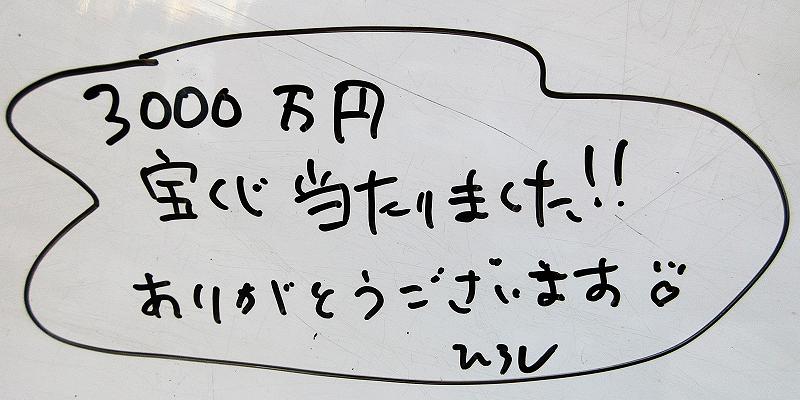 3000万円
宝くじ当たりました!!
ありがとうございます
ひろし